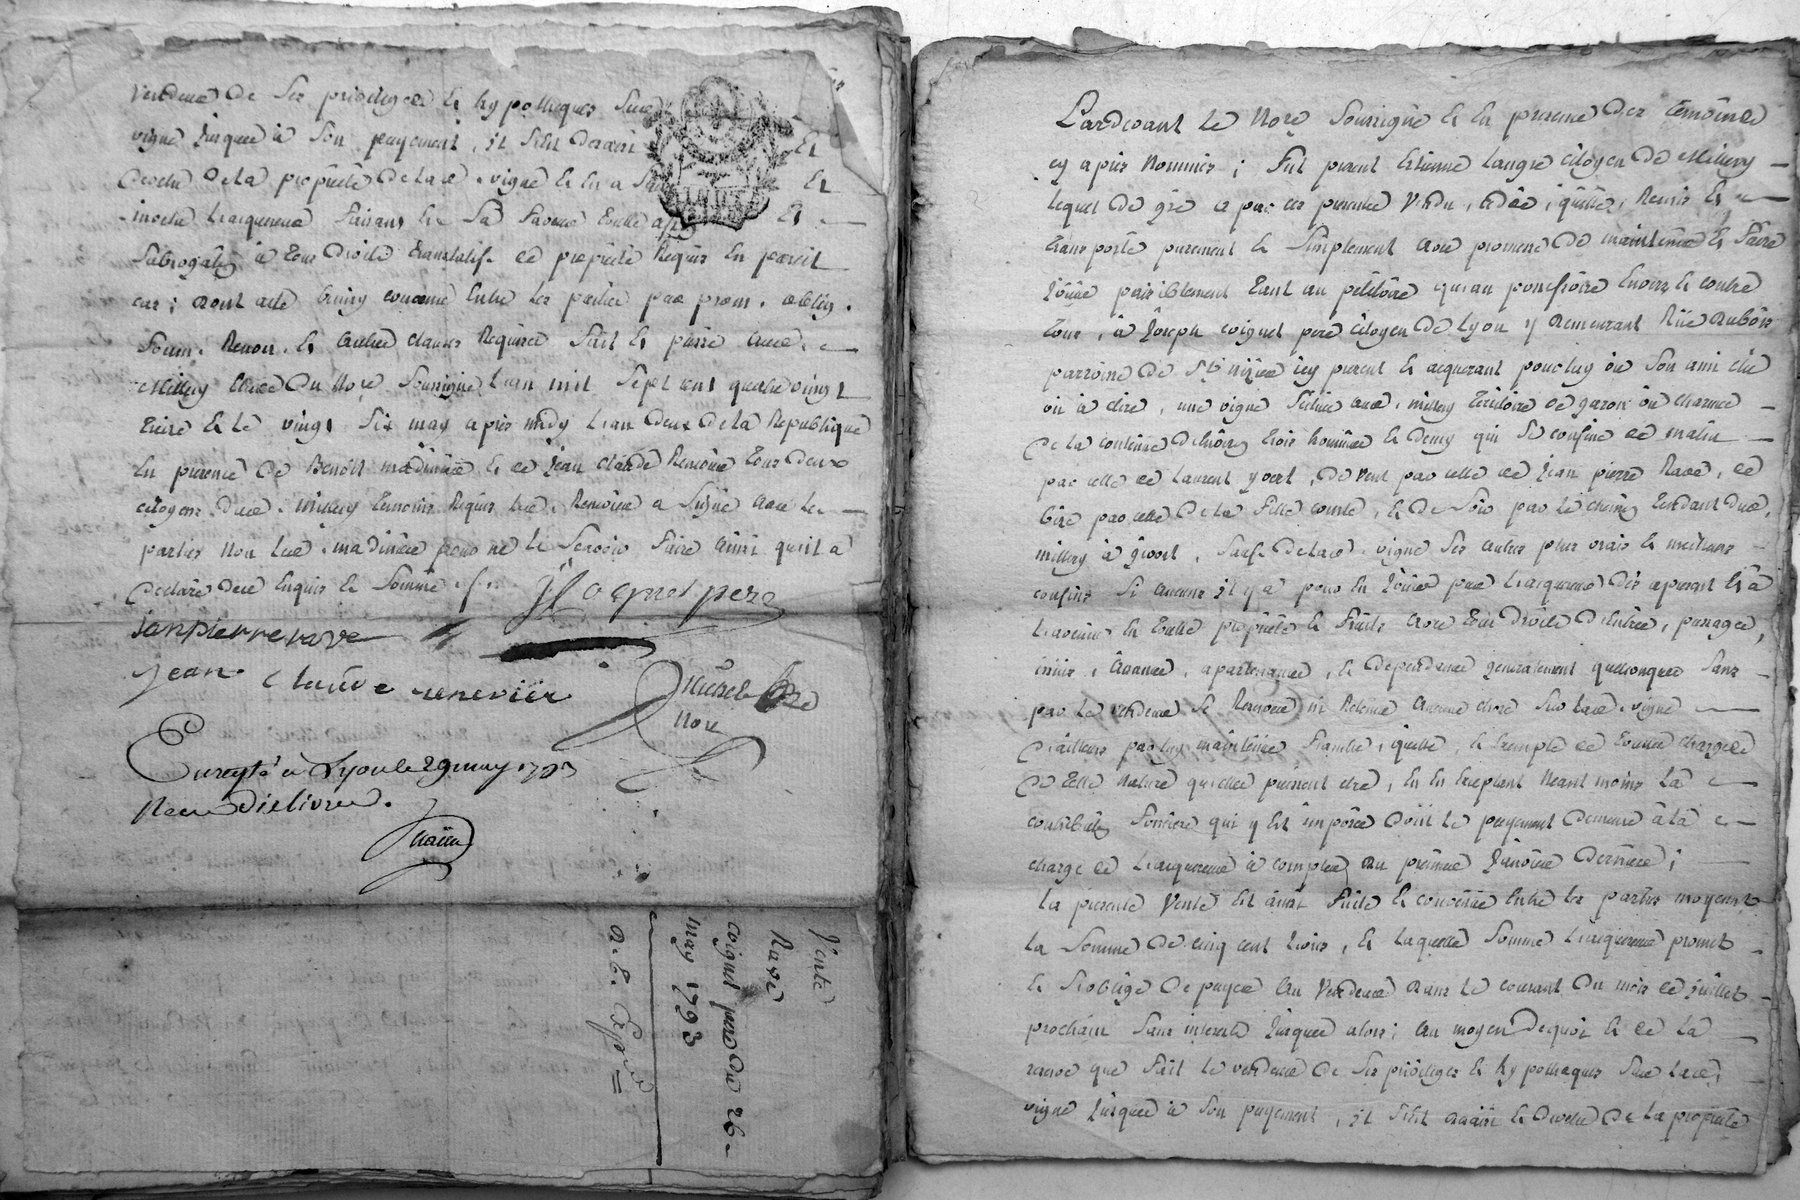 vendeur de ses privileges & hypotheques sur
vigne jusques à son payement, il s'est
de la propriété de lad. vigne & en a
l'acquereur faisant & sa faveur toutte
à tous droits translatif de propriété Requis en pareil
cas; dont acte ainsy convenu entre les parties par prom. oblig.
soum. Renon. & autres clauses Requises fait & passé aud.
Millery etude du Nore. soussigné L'an mil sept cent quatre vingt
treize & le vingt six may apres midy L'an deux de la Republique
En presence de Benoit & de Jean claude Renevier tous deux
citoyens dud. Millery temoins Requis led. Renevier a signé avec les
parties non led. pour ne le scavoir faire ainsi qu'il a
declaré de ce Enquis & sommé
J Coignet pere
janpierre rave
jean claude renevier
Nore
Enregté à Lyon le 29 may 1793
Reçu dix livres.
Vente
Rave
Coignet pere du 26
may 1793
Pardevant Le Nore soussigné & en presence des temoins
cy apres Nommés; fut present citoyen de Millery
lequel de gré a par ces presentes vendu, cedé, quitté, Remis &
transporté purement & simplement avec promesse de maintenir & faire
jouir paisiblement tant au petitoire qu'au possessoire envers & contre
tous, à Joseph coignet pere citoyen de Lyon y demeurant Rüe dubois
parroisse de St nizier icy present & acquerant pour luy ou son ami elu
ou à elire, une vigne située aud. millery territoire de garon ou charme
de la contenue d'Environ trois hommées & demy qui se confine de matin
par celle de Laurent , de vent par celle de Jean pierre Rave, de
bize par celle de la , & de soir par le chemin tendant dud.
millery à givort, sauf de lad. vigne ses autres plus vrais & meilleurs
confins si aucuns il y a pour en jouir par L'acquereur dès apresent & à
L'avenir en toutte propriété & fruits avec tous droits d'Entrée, passages,
issües, aisances, apartenances, & dependances generalement quelconques sans
par le vendeur se Reserver ni Retenir aucune chose sur lad. vigne
d'ailleurs par luy maintenüe franche, quitte, & Exempte de toutes charges
de telle Nature qu'elles puissent etre, En en Exceptant Neantmoins La
contribution fonciere qui y est imposée dont le payement demeure à la
charge de L'acquereur à compter du premier janvier dernier;
La presente vente est ainsi faite & convenüe entre les parties moyennt
la somme de cinq cent livres, & laquelle somme L'acquereur promet
& s'oblige de payer au vendeur dans le courant du mois de juillet
prochain sans interets jusques alors; au moyen de quoi & de La
reserve que fait le vendeur de ses privileges & hypotheques sur lad.
vigne jusques à son payement, il s'est & de la propriété